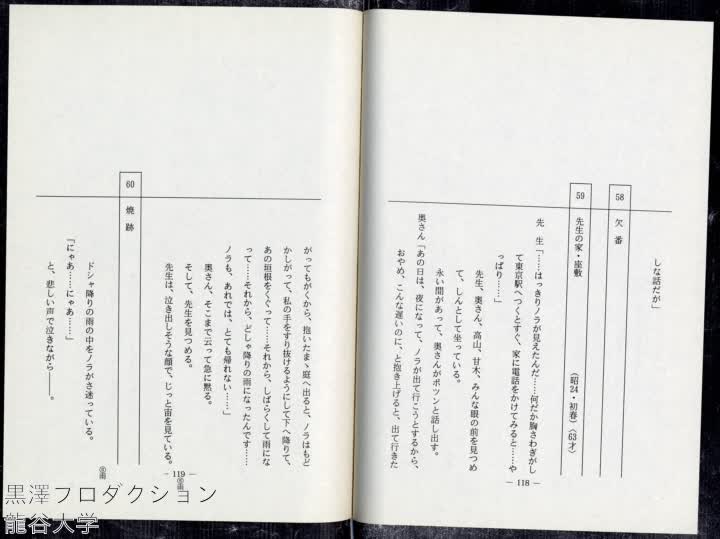 しな話だが」
58 欠番
59 先生の家・座敷
(昭24・初春)(63才)
先 生「……はっきりノラが見えたんだ……何だか胸さわぎがし
て東京駅へつくとすぐ、家に電話をかけてみると……や
っぱり……」
先生、奥さん、高山、甘木、みんな眼の前を見つめ
て、しんとして坐っている。
永い間があって、奥さんがポツンと話し出す。
奥さん「あの日は、夜になって、ノラが出て行こうとするから、
おやめ、こんな遅いのに、と抱き上げると、出て行きた
― 118 ―
がってもがくから、抱いたまゝ庭へ出ると、ノラはもど
かしがって、私の手をすり抜けるようにして下へ降りて、
あの垣根をくぐって……それから、しばらくして雨にな
って……それから、どしゃ降りの雨になったんです……
ノラも、あれでは、とても帰れない……」
奥さん、そこまで云って急に黙る。
そして、先生を見つめる。
先生は、泣き出しそうな顔で、じっと宙を見ている。
60 焼跡
ドシャ降りの雨の中をノラがさ迷っている。
「にゃあ……にゃあ……」
と、悲しい声で泣きながら――。
― 119 ―
黒澤プロダクション
龍谷大学